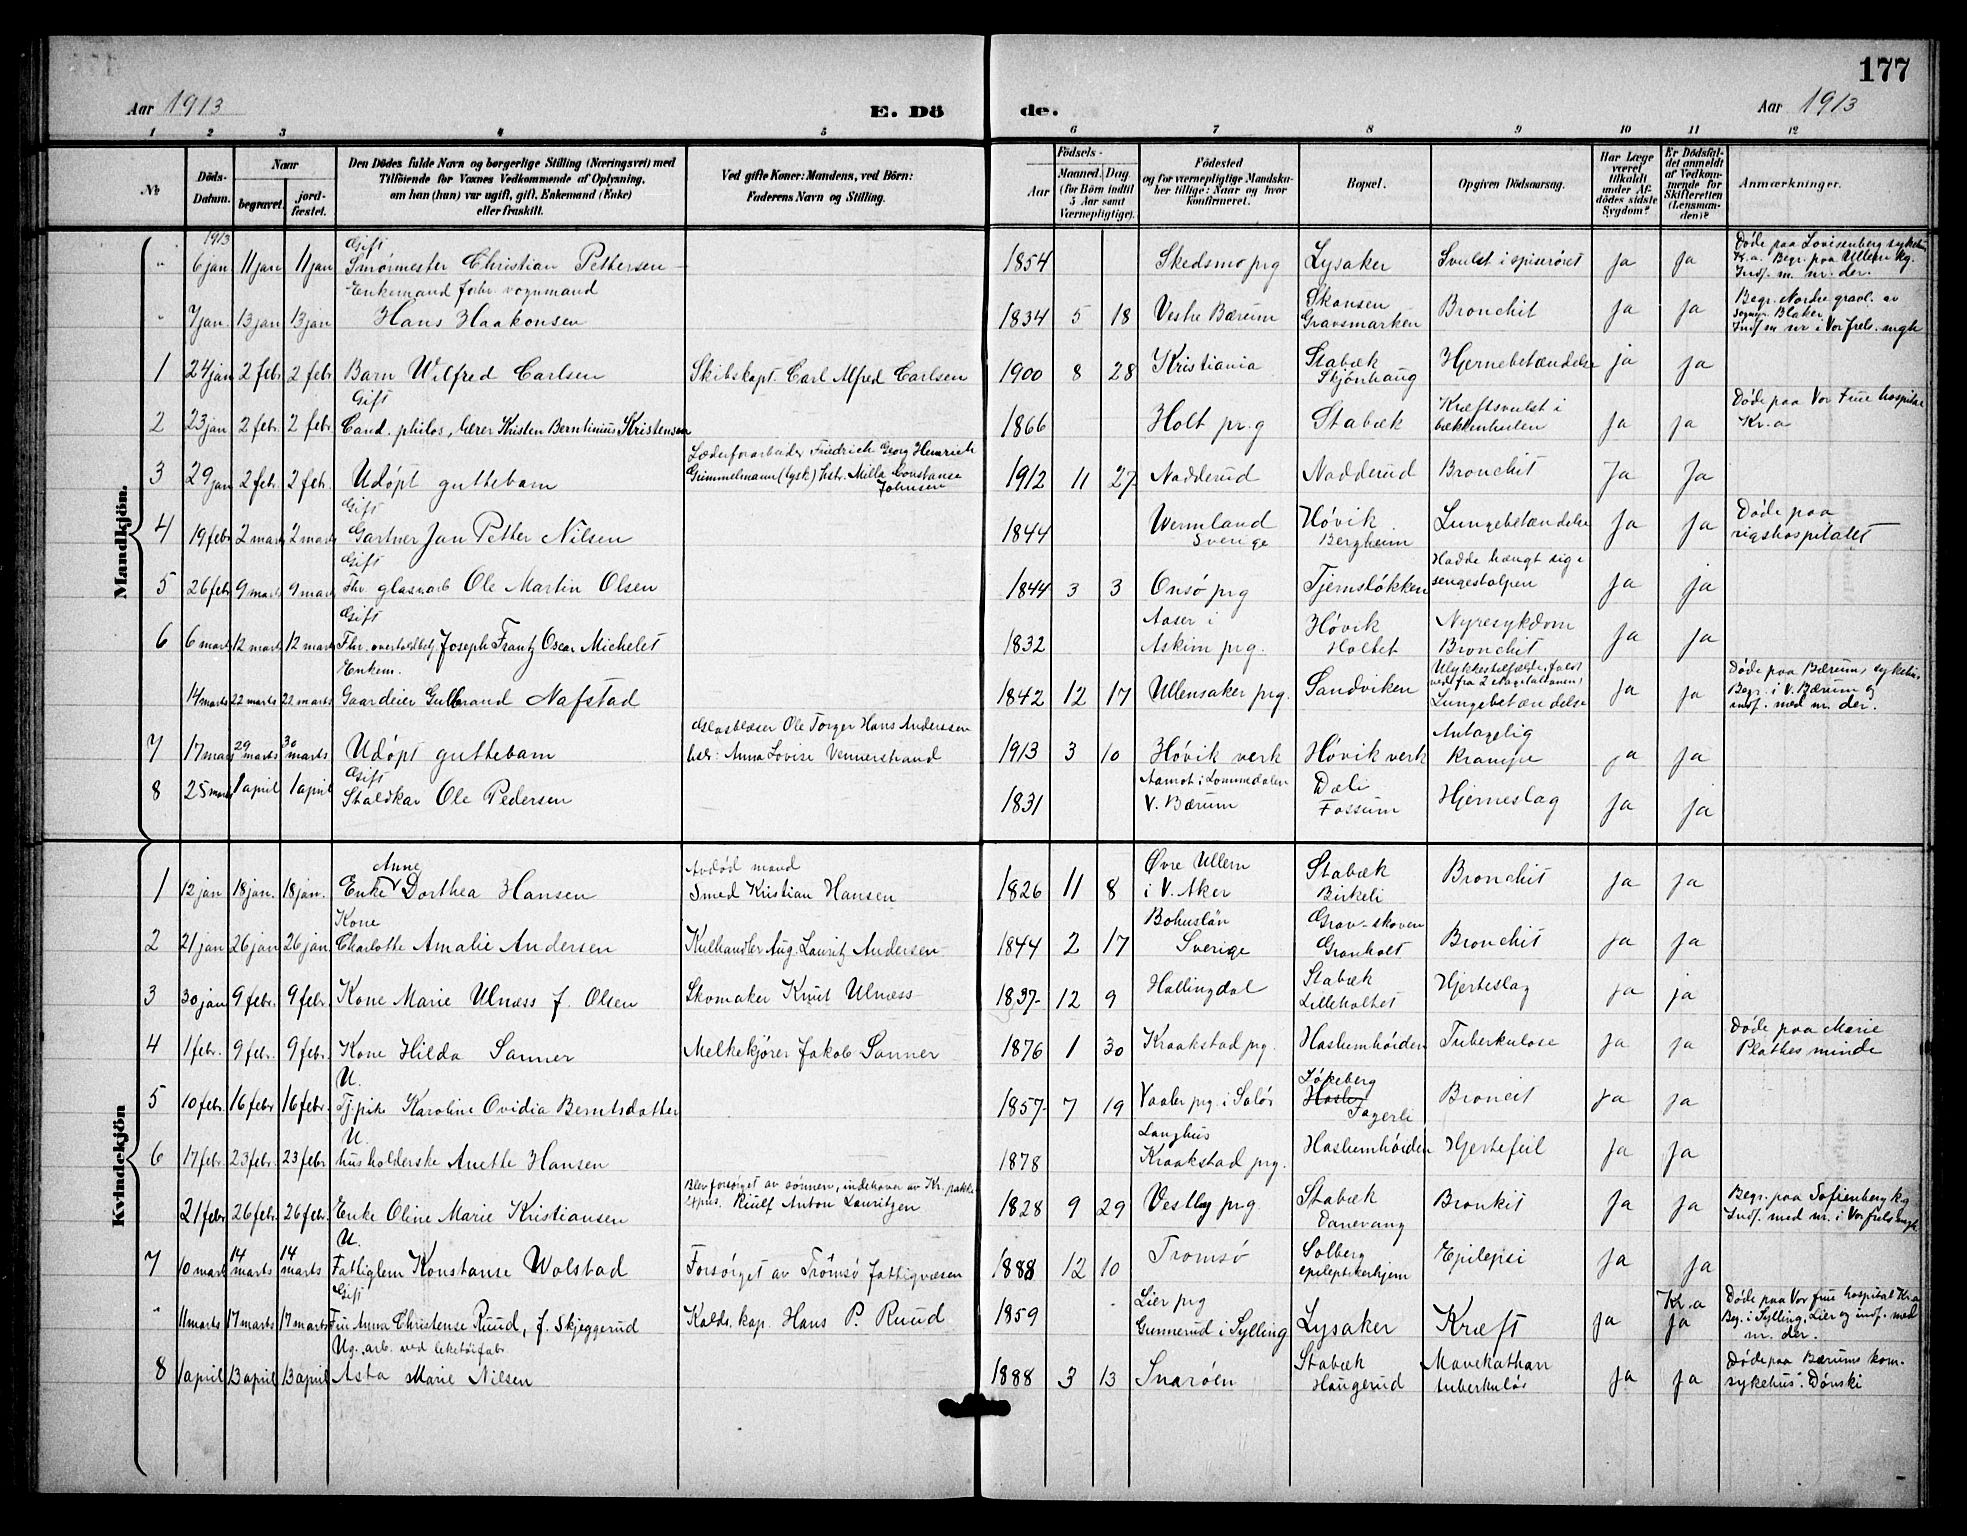 177
Aar 1913 E. Dö de. Aar 1913
1 2 3 4 5 6 7 8 9 10 11 12
No
Döds-Datum.
Naar
begravet.
jordfæstet.
Den Dödes fulde Navn og borgerlige Stilling (Næringsvei) med
Tilföiende for Voxnes Vedkommende af Oplysning,
om han (hun) var ugift, gift, Enkemand (Enke)
eller fraskilt.
Ved gifte Koner: Mandens, ved Börn:
Faderens Navn og Stilling.
Födsels-
Aar
Maaned. Dag
(for Börn indtil
5 Aar samt
Værnepligtige).
Födested
og for værnepligtige Mandska-
ber tillige: Naar og hvor
konfirmeret.
Bopæl.
Opgiven Dödsaarsag.
Har Læge
været
tilkaldt
under Af-
dödes sidste
Sygdom?
Er Dödsfal-
det anmeldt
af Vedkom-
mende for
Skifteretten
(Lensman-
den)?
Anmærkninger.
Mandkjön.
1913
" 6 jan 11 jan 11 jan Gift Smørmester Christian Pettersen 1854 Skedsmo prg Lysaker Svulst i spiserøret Ja Ja Døde paa Lovisenberg sykeh. Kr.a. Begr. paa Ullern kg. Indf. m. nr. der.
" 7 jan. 13 jan 13 jan Enkemand forhv. vognmand Hans Haakonsen 1834 5 18 Vestre Bærum Skansen Gravsmarken Bronchit Ja Ja Begr. Nordre gravl. av sognpr. Blaker. Indf m nr i Vor frels. mgh
1 24 jan 2 febr 2 febr Barn Wilfred Carlsen Skibskapt. Carl Alfred Carlsen 1900 8 28 Kristiania Stabæk Skjønhaug Hjernebetændelse ja ja
2 23 jan 2 febr. 2 febr. Gift Cand. philos, lærer Kristen Berntinius Kristensen 1866 Holt pr.g Stabæk Kræftsvulst i bækkenhulen Ja Ja Døde paa Vor Frue hospital Kr.a
3 29 jan 2 febr. 2 febr. Udøpt guttebarn Læderforarbeider Friedrich Georg Heinrich Grimmelmann (tysk) hstr. Milla Constanse Johnsen 1912 11 27 Nadderud Nadderud Bronchit Ja Ja
4 19 febr 2 marts 2 marts Gift Gartner Jan Petter Nilsen 1844 Wermland Sverige Høvik Bergheim Lungebetændelse Ja Ja Døde paa rigshospitalet
5 26 febr 9 marts 9 marts Gift Fhv. glasarb Ole Martin Olsen 1844 3 3 Onsø prg Tjernsløkken Hadde hængt sig i sengestolpen Ja Ja
6 6 marts 12 marts 12 marts Gift Fhv. overtoldbetj Joseph Frantz Oscar Michelet 1832 Aaser i Askim prg. Høvik Holtet Nyresykdom Bronchit Ja Ja
14 marts 22 marts 22 marts Enkem. Gaardeier Gulbrand Nafstad 1842 12 17 Ullensaker prg. Sandviken Ulykkestilfælde, faldt ned fra 2 etage Lungebetændelse Ja Ja Døde paa Bærums sykehus Begr. i V. Bærum og indf. med nr. der.
7 17 marts 29 marts 30 marts Udøpt guttebarn Glasblæser Ole Torger Hans Andersen hstr: Anna Lovise Vennerstrand 1913 3 10 Høvik verk Høvik verk Antagelig Krampe ja Ja
8 25 marts 1 april 1 april Gift Staldkar Ole Pedersen 1831 Aamot i Lommedalen V. Bærum Dæli Fossum Hjerneslag Ja Ja
Kvindekjön
1 12 jan 18 jan. 18 jan. Enke Anne Dorthea Hansen Avdød mand Smed Kristian Hansen 1826 11 8 Øvre Ullern i V. Aker Stabæk Birkeli Bronchit Ja Ja
2 21 jan 26 jan 26 jan Kone Charlotte Amalie Andersen Kulhandler Aug. Lauritz Andersen 1844 2 17 Bohuslän Sverige Grav-skoven Granholt Bronchit Ja Ja
3 30 jan 9 febr. 9 febr. Kone Marie Ulnæss f. Olsen Skomaker Knut Ulnæss 1837 12 9 Hallingdal Stabæk Lilleholtet Hjerteslag Ja ja
4 1 febr. 9 febr. 9 febr. Kone Hilda Sanner Melkekjører Jakob Sanner 1876 1 30 Kraakstad prg. Haslumhøiden Tuberkulose Ja Ja Døde paa Marie Plathes minde
5 10 febr. 16 febr 16 febr. U. Tj.pike Karoline Ovidia Berntsdatter 1857 7 19 Vaaler prg. i Solør Jøkeberg Fagerli Broncit Ja Ja
6 17 febr. 23 febr. 23 febr U. husholderske Anette Hansen 1878 Langhus Kraakstad prg. Haslumhøiden Hjertefeil Ja Ja
21 febr 26 febr. 26 febr. Enke Oline Marie Kristiansen Blev forsørget av sønnen, indehaver av Kr. Riulf Anton Lauritzen 1828 9 29 Vestby prg Stabæk Danevang Bronkit Ja Ja Begr. paa Sofienberg kg Indf. med nr. i Vor frels mgh
7 10 marts 14 marts 14 marts U. Fattiglem Konstanse Wolstad Forsørget av Tromsø fattigvæsen 1888 12 10 Tromsø Solberg epileptikerhjem Epilepsi Ja Ja
" 11 marts 17 marts 17 marts Gift Fru Anna Christense Ruud, f. Skjeggerud Kalds. kap. Hans P. Ruud 1859 Lier prg Gunnerud i Sylling Lysaker Kræft Ja Kr.a Ja Døde paa Vor frue hospital Kr.a Beg. i Sylling, Lier og indf. med nr. der.
8 1 april 13 april 13 april Ug. arb. ved leketøifabr. Asta Marie Nilsen 1888 3 13 Snarøen Stabæk Haugerud Mavekathar tuberkuløs Ja Ja Døde paa Bærums kom. sykehus: Dønski